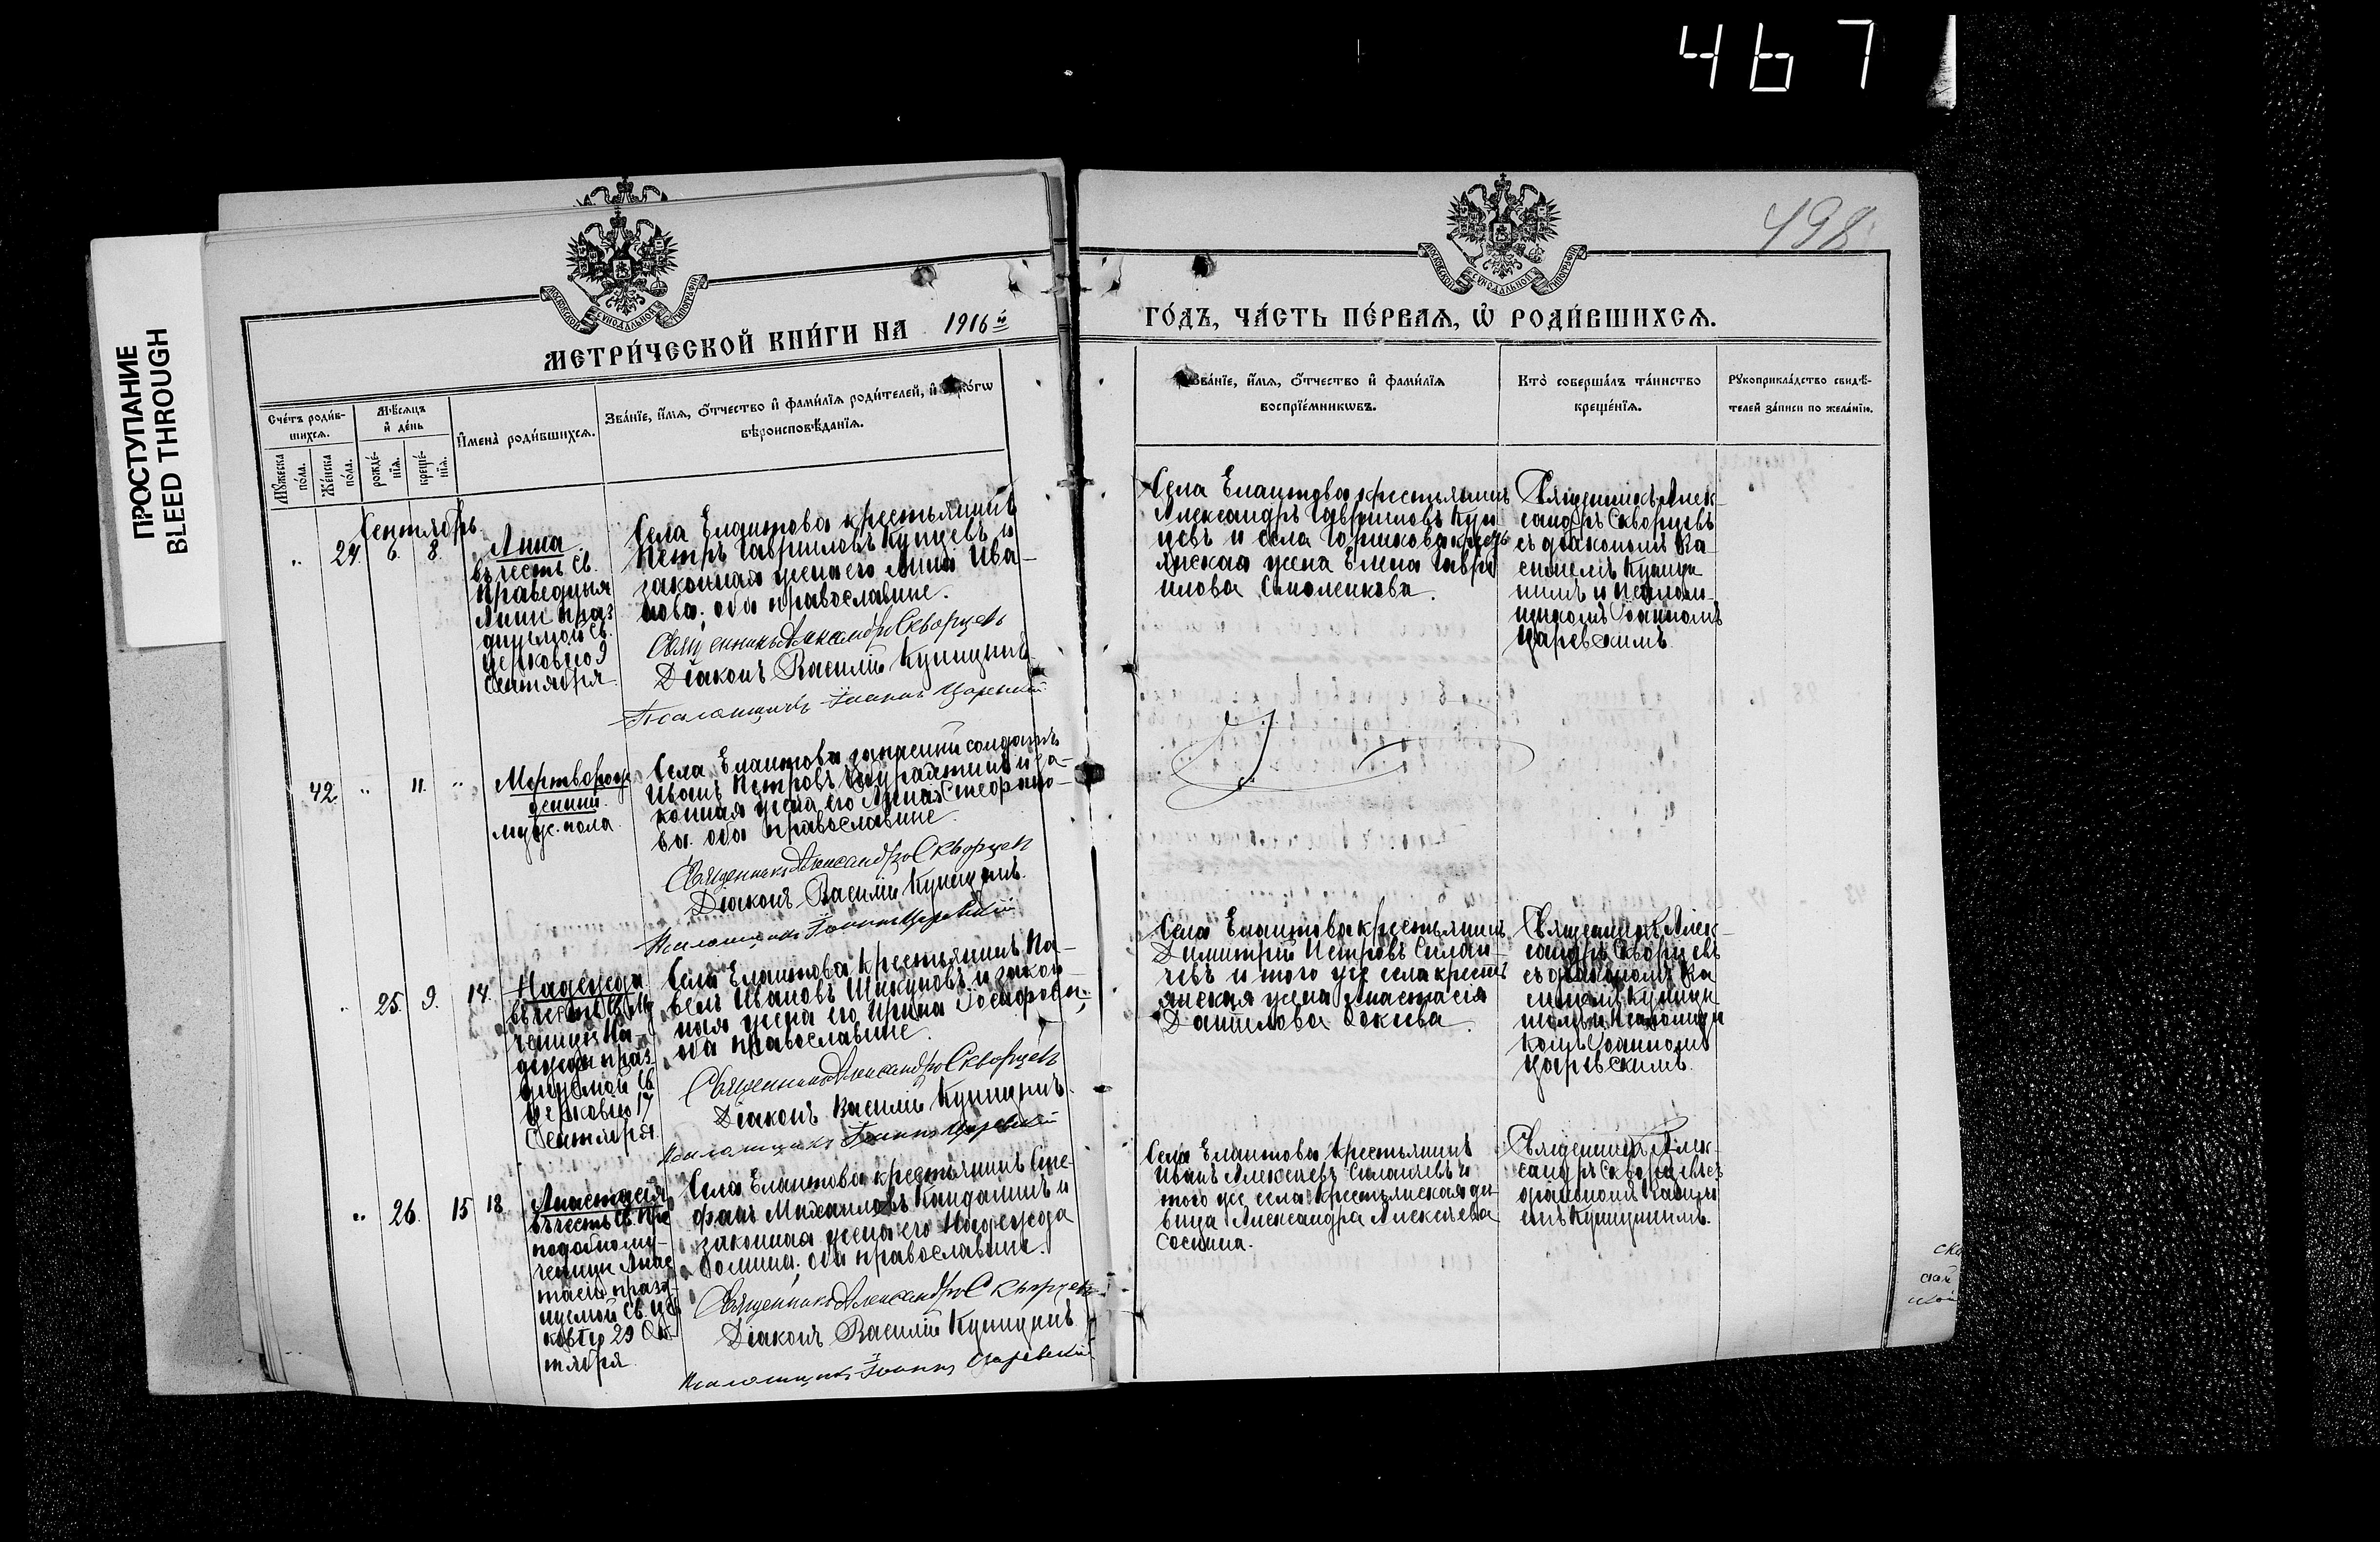 467
ПРОСТУПАНИЕ
BLEED THROUGH
498
МОСКОВСКОЙ СУНОДАЛЬНОЙ ТИПОГРАФІИ
МОСКОВСКОЙ СУНОДАЛЬНОЙ ТИПОГРАФІИ
МЕТРИ́ЧЕСКОЙ КНИ́ГИ НА 1916й
ГО́ДЪ, ЧА́СТЬ ПЕ́РВАѦ, Ѽ РОДИ́ВШИХСѦ.
Сче́тъ роди́в-
шихсѧ.
Мѣ́сѧцъ
и҆ де́нь
И҆мена̀ роди́вшихсѧ.
Зва́нїе, и҆́мѧ, ѻ҆́тчество и҆ фами́лїѧ роди́телей, и҆ како́гѡ
вѣроисповѣ́данїѧ.
Мꙋ́жеска
по́ла.
Же́нска
по́ла.
рожде́-
нїѧ.
креще́-
нїѧ.
Зва́нїе, и҆́мѧ, ѻ҆́тчество и҆ фами́лїѧ
воспрїе́мникѡвъ.
Кто̀ соверша́лъ та́инство
креще́нїѧ.
Рꙋкоприкла́дство свидѣ́-
телей за́писи по жела́нїю.
Сентябрь
" 24. 6. 8.
Анна
въ честь св.
праведныя
Анны праз
днуемой св.
церковью 9
Сентября.
Села Елатова крестьянинъ
Петръ Гавриловъ Купцевъ и
законная жена его Анна Ива-
нова; оба православные.
Священникъ Александръ Скворцевъ
Діаконъ Василій Куницынъ
Псаломщикъ Іоаннъ Царевскій
Села Елатова крестьянинъ
Александръ Гавриловъ Куп
цевъ и села Горшкова кресть
янская жена Елена Гаври
илова Смоленкова.
Священникъ Алек-
сандръ Скворцевъ
съ діакономъ Ва-
силіемъ Куницы
нымъ и псалом-
щикомъ Іоанномъ
Царевскимъ.
42. " 11. "
Мертворож
денный
муж. пола.
Села Елатова запасный солдатъ
Иванъ Петровъ и за-
конная жена его
ва. оба православные.
Священникъ Александръ Скворцевъ
Діаконъ Василій Куницынъ.
Псаломщикъ Іоаннъ Царевскій
" 25. 9. 14.
Надежда
въ честь св. му
ченицы На-
дежды праз
днуемой св.
церковью 17
Сентября.
Села Елатова крестьянинъ Па-
велъ Ивановъ Шикуновъ и закон-
ная жена его Ирина
оба православные.
Священникъ Александръ Скворцевъ
Діаконъ Василій Куницынъ.
Псаломщикъ Іоаннъ Царевскій
Села Елатова крестьянинъ
Димитрій Петровъ Силан-
чевъ и того же села кресть
янская жена Анастасія
Данилова
Священникъ Алек-
сандръ Скворцевъ
съ діакономъ Ва
силіемъ Куницы
нымъ и псаломщи
комъ Іоанномъ
Царевскимъ.
" 26. 15 18.
Анастасія
въ честь св. пре
подобному-
ченицы Анас
тасіи празд-
нуемой св. цер
ковью 29 Ок-
тября.
Села Елатова крестьянинъ Сте-
фанъ Михаиловъ Кандалинъ и
законная жена его Надежда
Ѳомина; оба православные.
Священникъ Александръ Скворцевъ
Діаконъ Василій Куницынъ
Псаломщикъ Іоаннъ Царевскій
Села Елатова крестьянинъ
Иванъ Алексеевъ Силанчевъ и
того же села крестьянская дѣ-
вица Александра Алексеева
Соснина.
Священникъ Алек-
сандръ Скворцевъ съ
діакономъ Васили
емъ Куницынымъ.